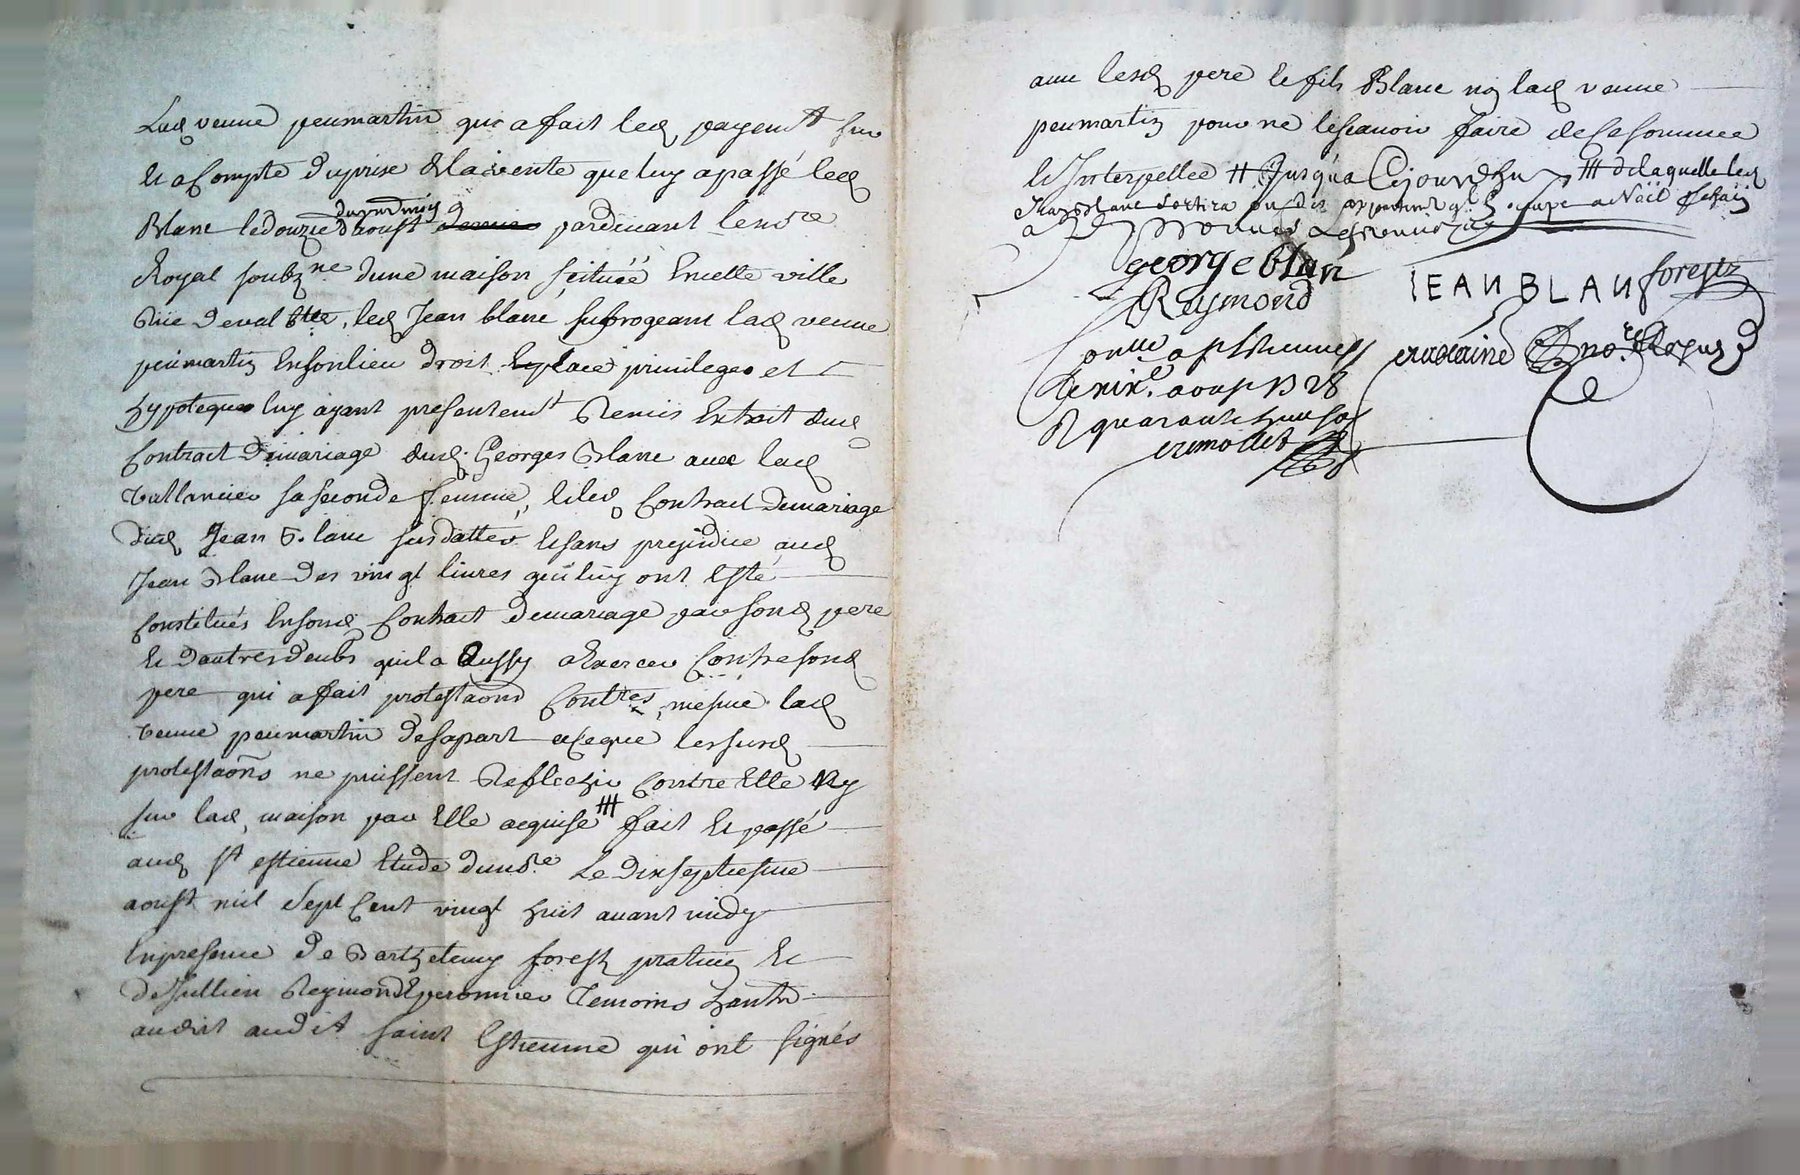 Lad veuve peumartin qui a fait led payemt sur
et a Compte du prise de la vente que luy a passé led
du pnt mois
Blanc le douzie d'aoust pardevant le nore
Royal soubzne d'une maison scituée En cette ville
Rüe de led Jean blanc subrogeant lad veuve
peumartin En son lieu droit Explace privileges et
hypoteques luy ayant presentemt Remis Extrait dud
Contract de mariage dud Georges Blanc avec lad
Vallancier sa seconde femme, et led Contract de mariage
dud Jean Blanc susdattes et sans prejudice aud
Jean Blanc des vingt livres qui luy ont Esté
Constitués En sond Contract de mariage par sond pere
et d'autres deubs quil a Aussy a Exercer Contre sond
pere qui a fait protestaons Contres, mesme lad
veuve peumartin de sa part a ce que les susd
protestaons ne puissent Reflechir Contre Elle Ny
sur lad maison par Elle acquise # fait et passé
aud st estienne Etude dud nore Le dixseptiesme
aoust mil sept Cent vingt huit avant midy
En presence de Barthelemy forest praticien et
de Jullien Reymond peronnier Temoins
audit saint Estienne qui ont signés
avec lesd pere et fils Blanc non lad veuve
peumartin pour ne le scavoir faire de ce sommee
et Interpellee # Jusqu'a Cejourdhuy # de laquelle led
Blanc sortira a Noël prochain
george blan
Reymond
IEAN BLAN
forestz
Conlle a st Estienne
le aoust 1728
R quarante huit sols
nore Royal